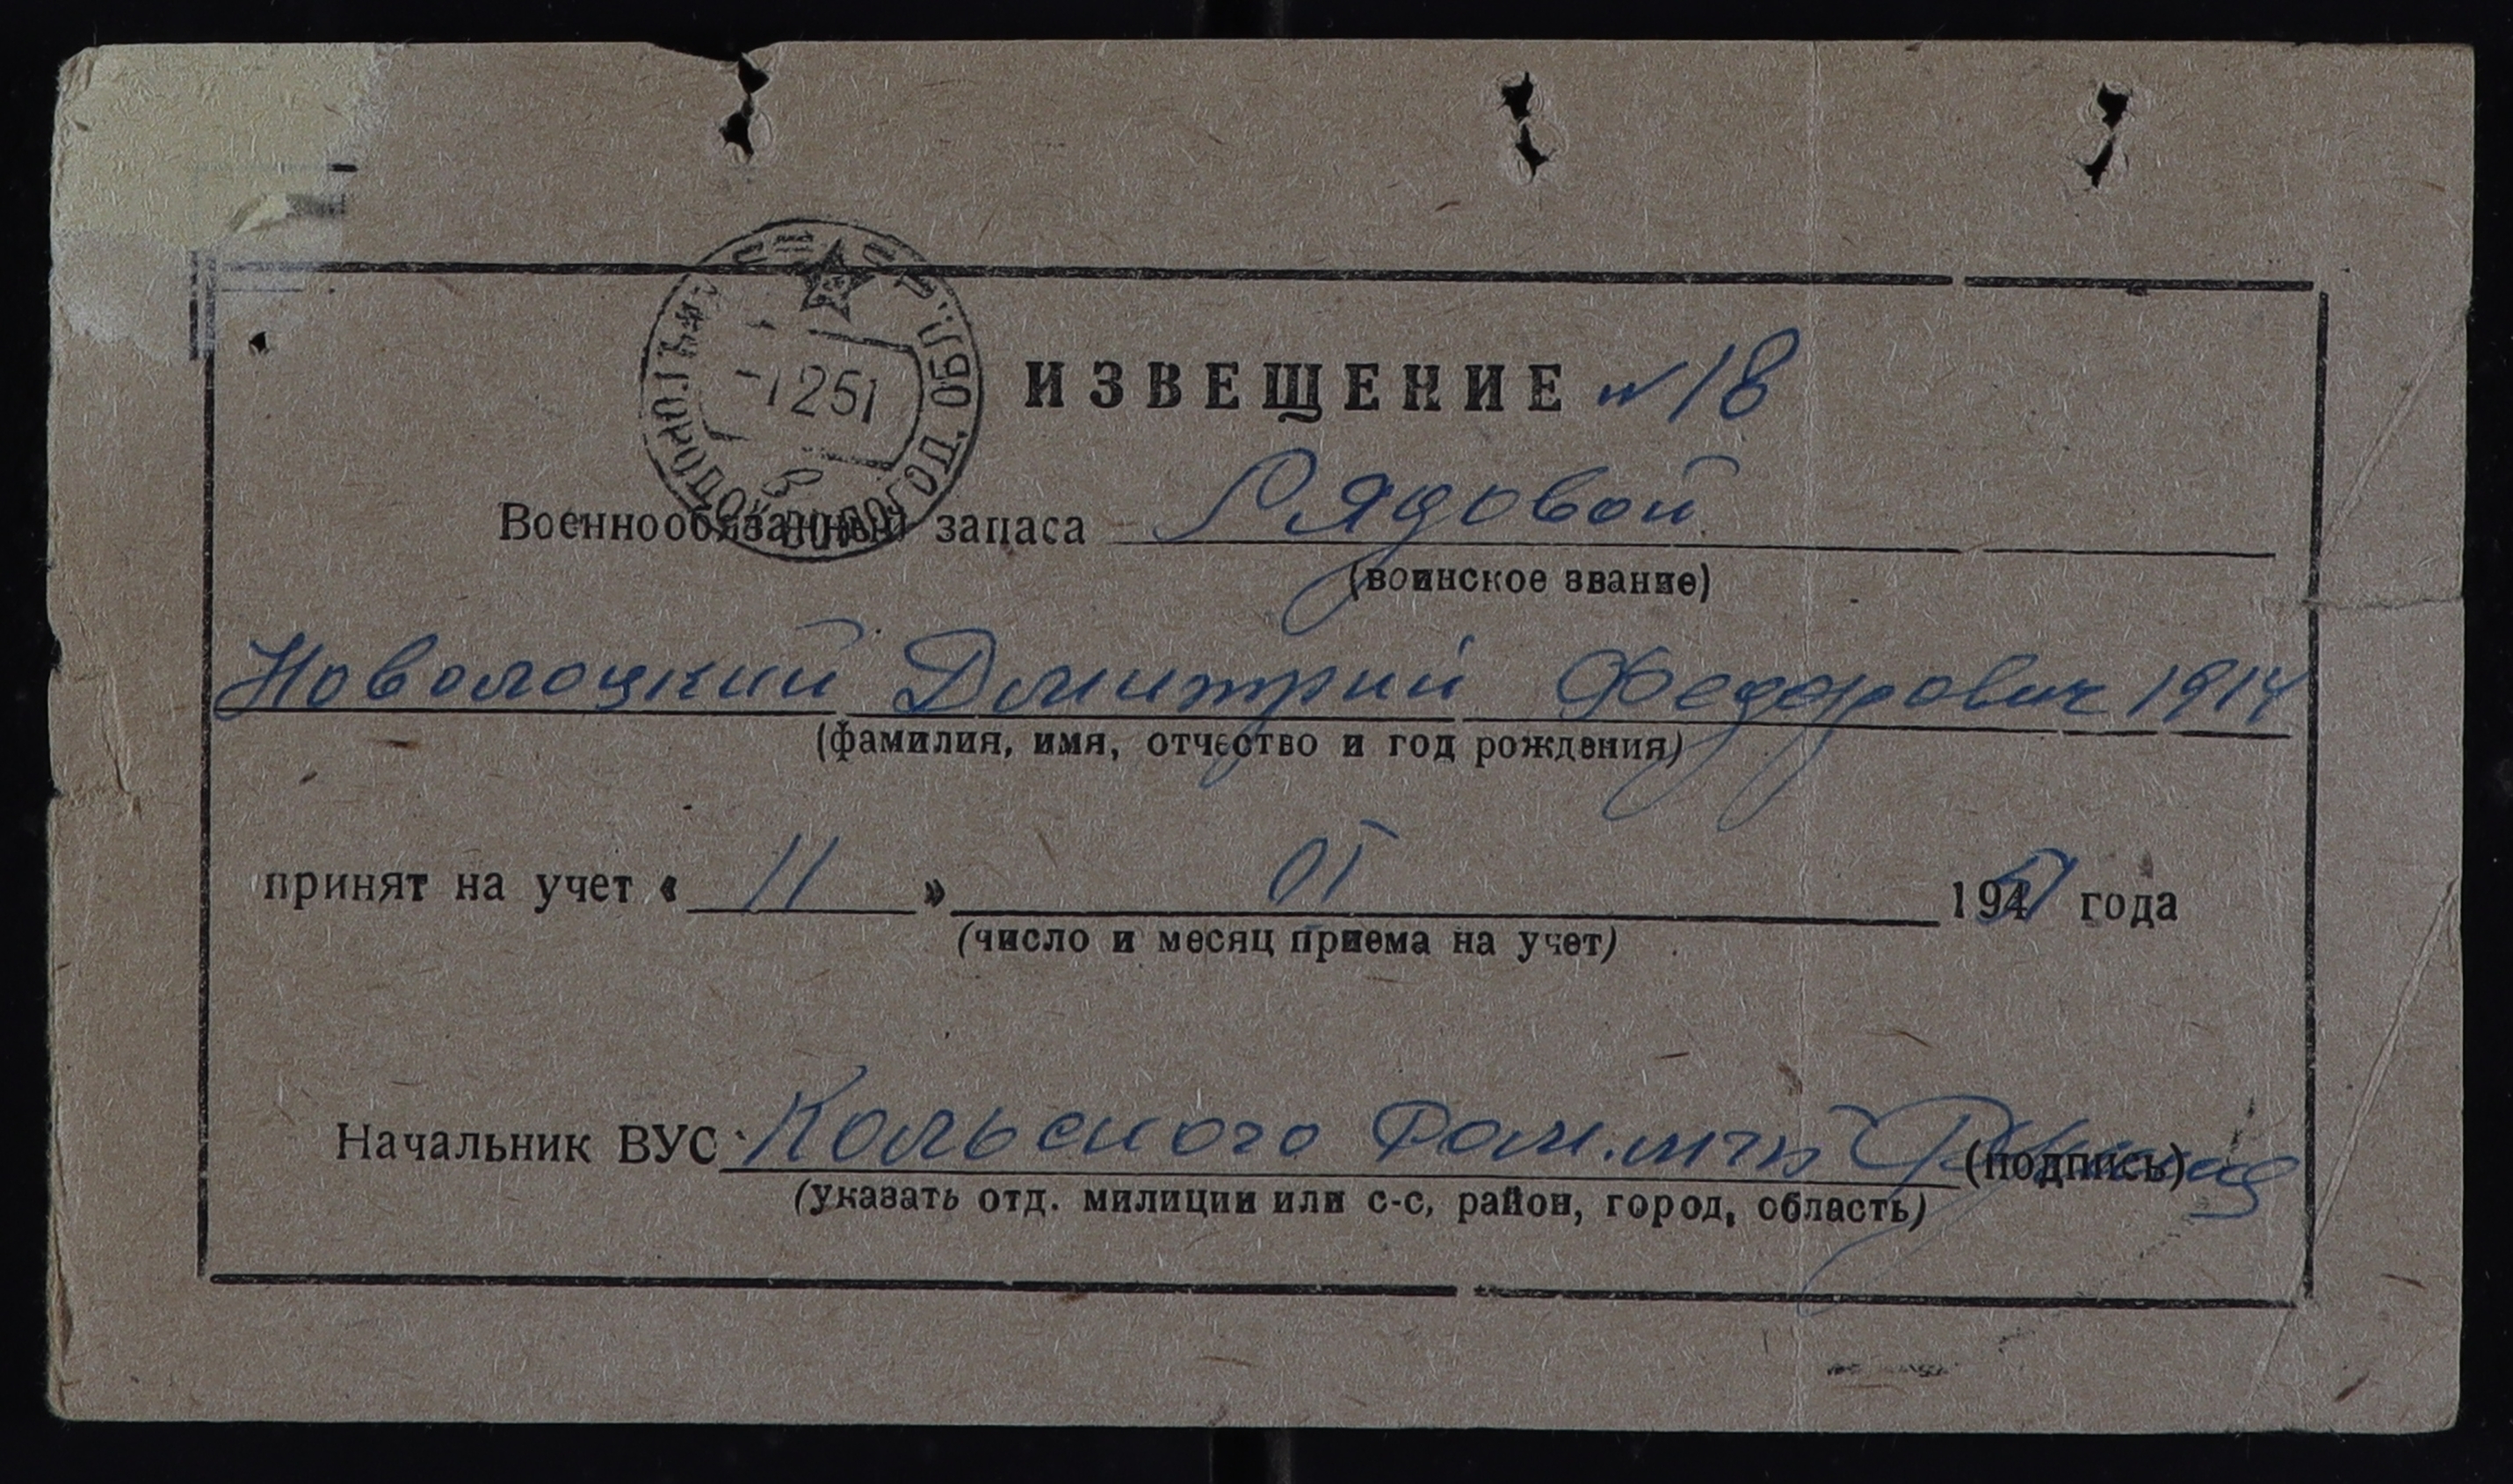 ИЗВЕЩЕНИЕ №18
-1 2 51
Военнообязанный запаса Рядовой
(воинское звание)
Новолоцкий Дмитрий Федорович 1914
(фамилия, имя, отчество и год рождения)
принят на учет « 11 » 01 1951 года
(число и месяц приема на учет)
Начальник ВУС Кольского (подпись)
(указать отд. милиции или с-с, район, город, область)